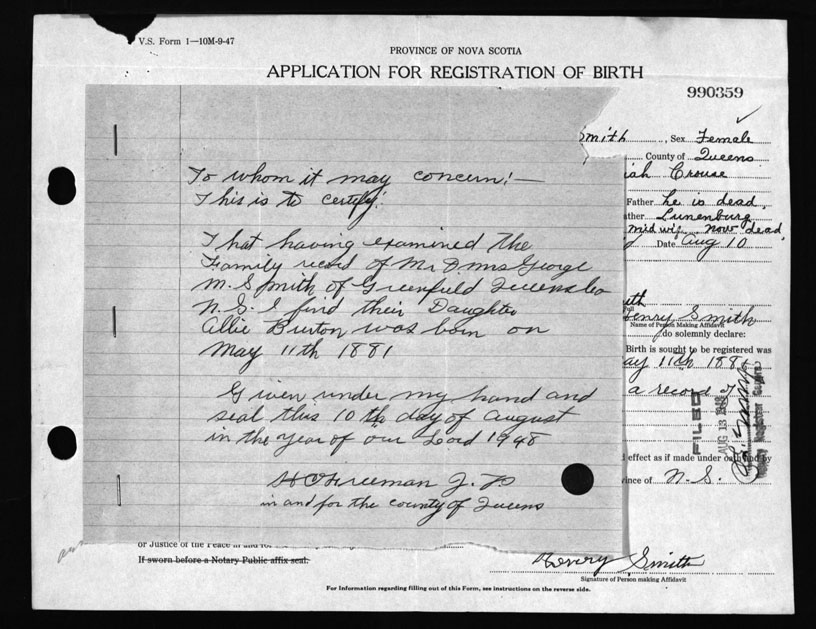 V.S. Form 1—10M-9-47
PROVINCE OF NOVA SCOTIA
APPLICATION FOR REGISTRATION OF BIRTH
990359
Smith, Sex Female
County of Queens
iah Crouse
Father he is dead.
ather Lunenburg
mid wif now dead,
Date Aug 10
To whom it may concern:—
This is to certify:
That having examined the
Family record of Mr & Mrs George
M. Smith of Greenfield Queens Co
N.S. I find their Daughter
Allie Burton was born on
May 11th 1881
Given under my hand and
seal this 10th day of August
in the year of our Lord 1948
H C Freeman J.P
in and for the county of Queens
ith
Henry Smith
Name of Person Making Affidavit
do solemnly declare:
Birth is sought to be registered was
ay 11th 1881
a record of
FILED
AUG 13 1948
Deputy Registrar General
effect as if made under oath and by
ince of N.S.
or Justice of the Peace in and for
If sworn before a Notary Public affix seal.
Henry Smith
Signature of Person making Affidavit
For Information regarding filling out of this Form, see instructions on the reverse side.